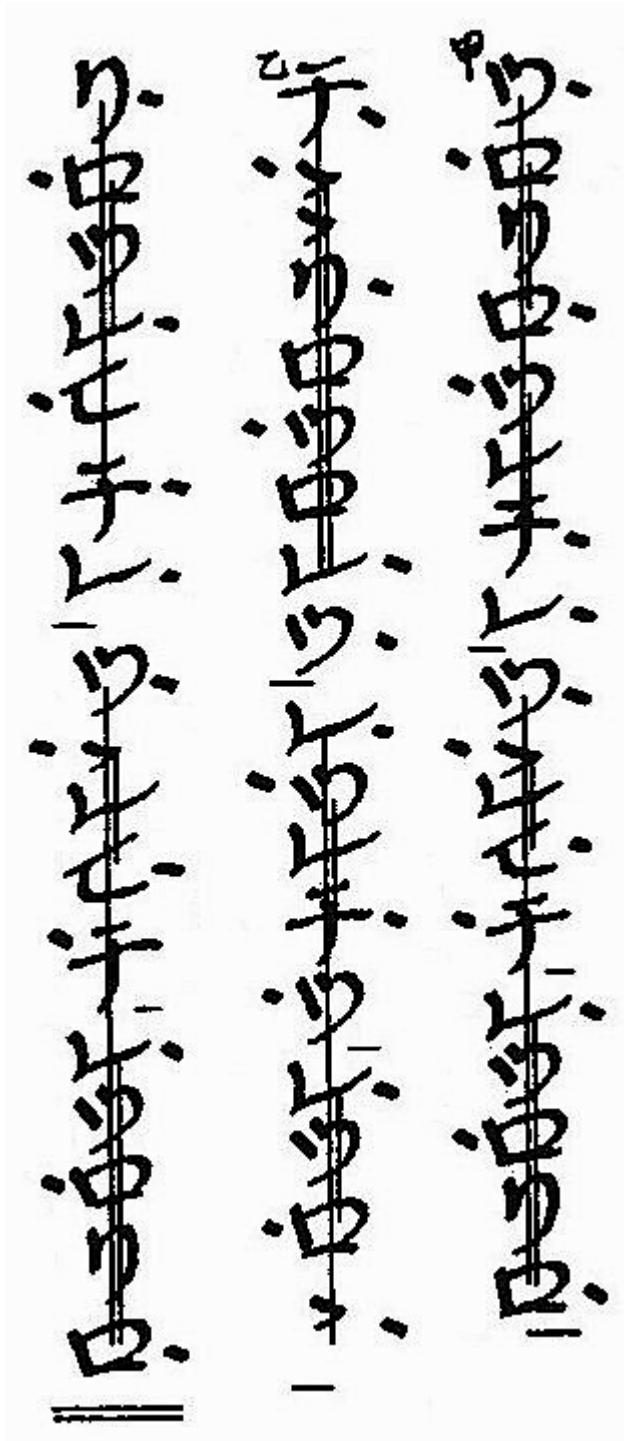 甲ツロリロツレチレツゝレヒチレツロリロ
乙チゝゝリロツロレツレツレチツレツロゝ
リロツレヒチレツゝレヒチレツロリロ